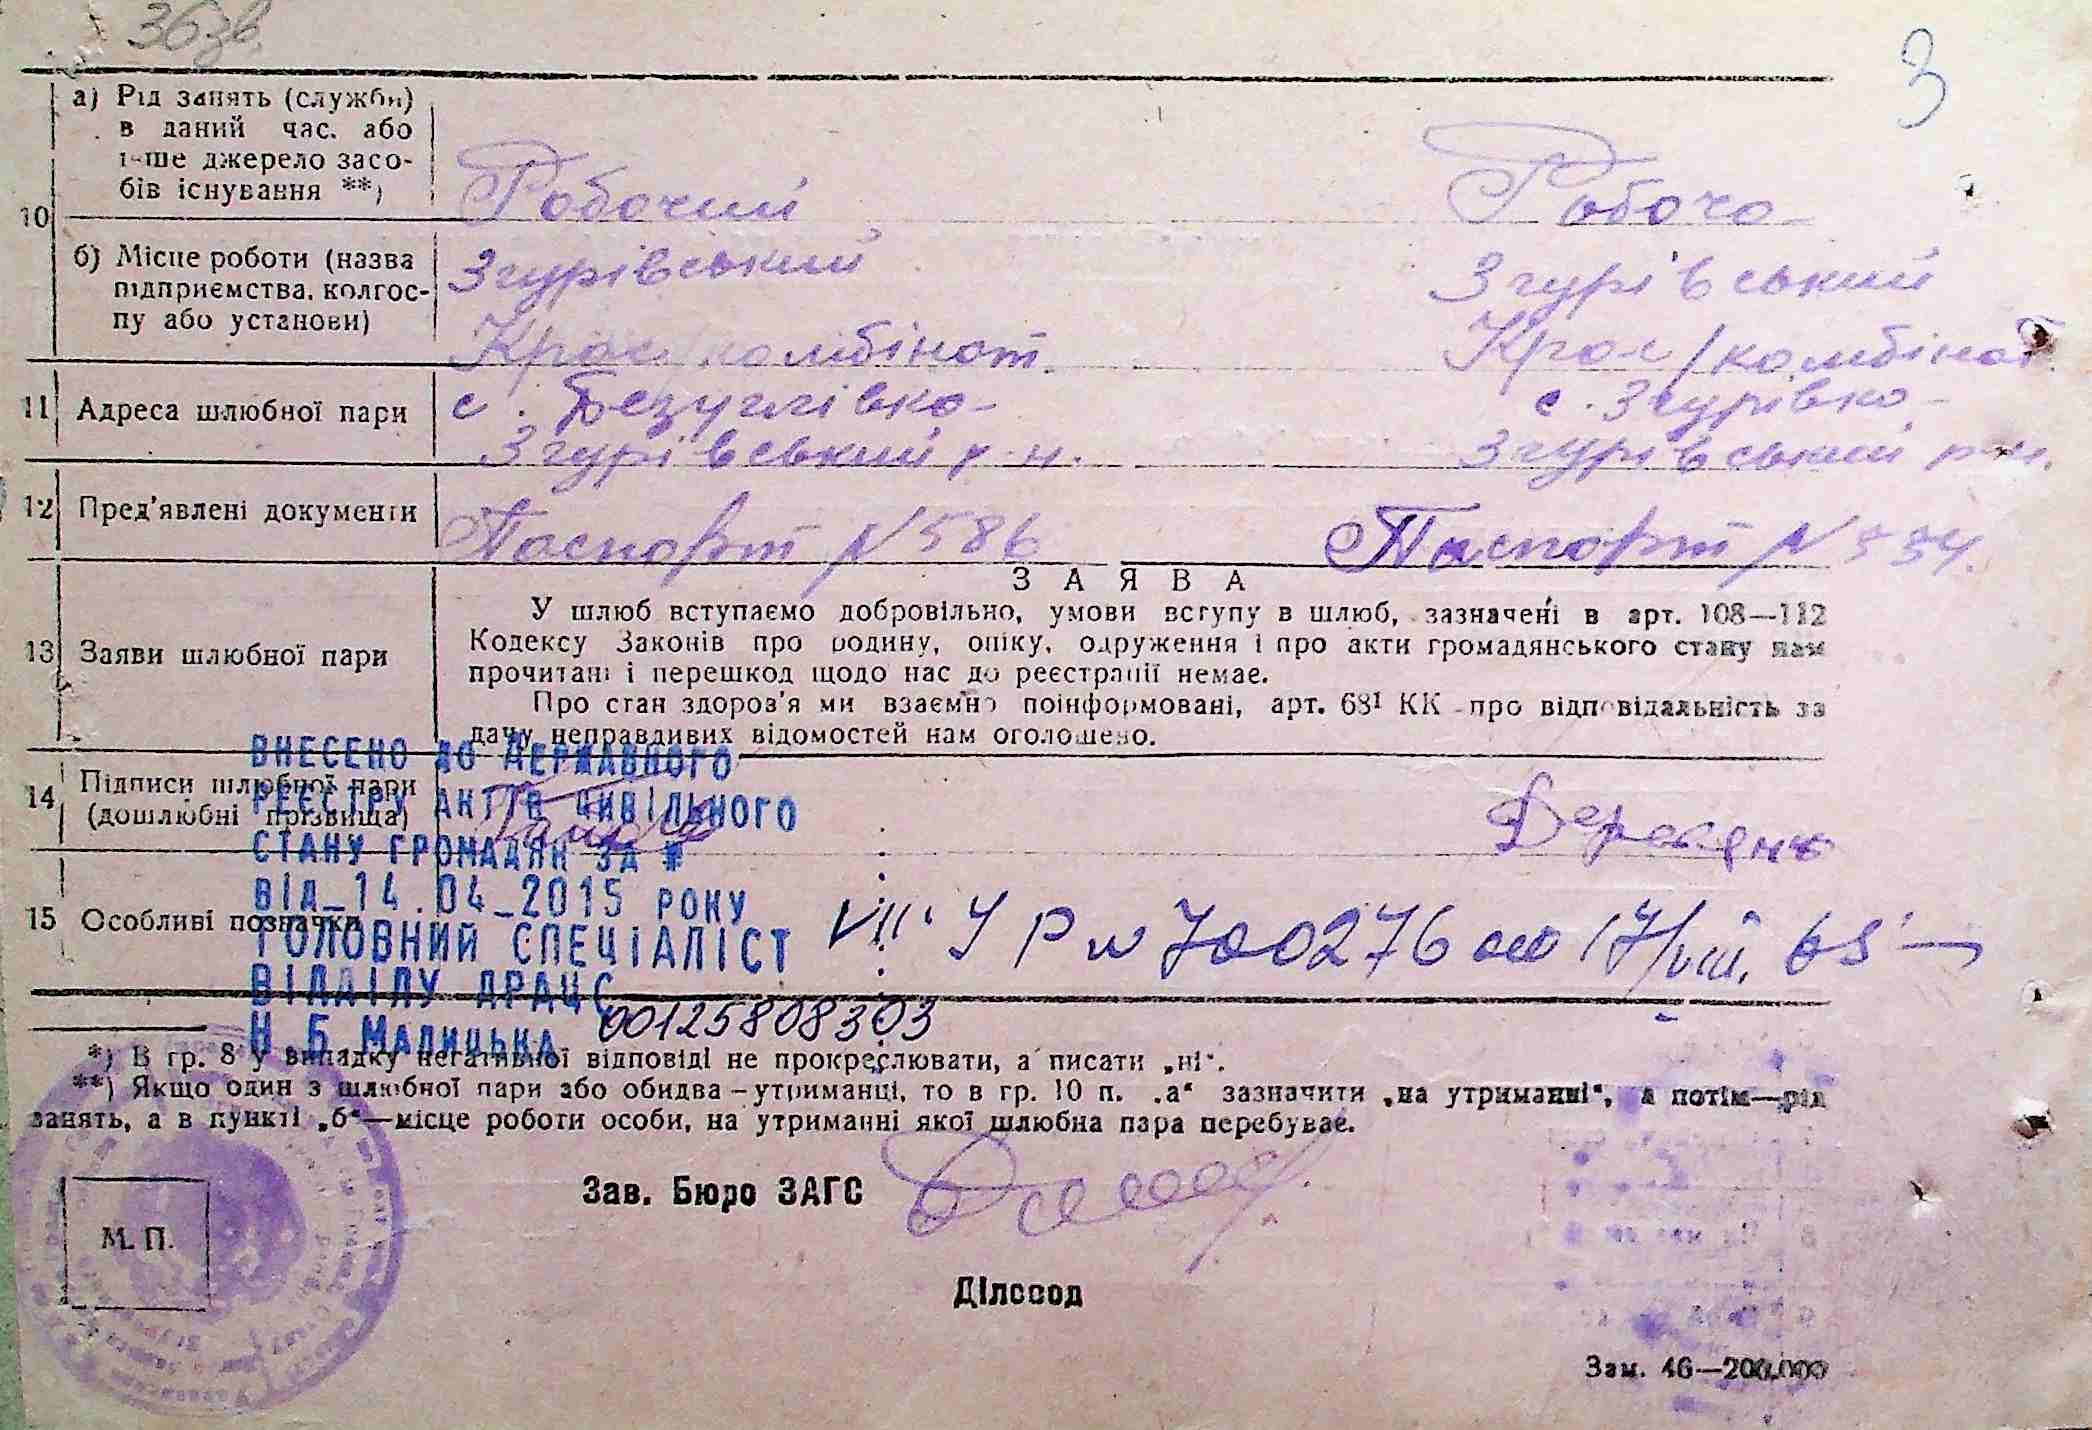 36зв.
3
а) Рід занять (служби) в даний час, або інше джерело засобів існування **)
Робочий Робоча
10
б) Місце роботи (назва підприємства, колгоспу або установи)
Згурівський Згурівський
Крол/комбінат Крол/комбінат
11 Адреса шлюбної пари
с. Безуглівка с. Згурівка
Згурівський р-н. Згурівський р-н.
12 Пред'явлені документи
Паспорт № 586 Паспорт №
13 Заяви шлюбної пари
ЗАЯВА
У шлюб вступаємо добровільно, умови вступу в шлюб, зазначені в арт. 108—112
Кодексу Законів про родину, опіку, одруження і про акти громадянського стану нам
прочитані і перешкод щодо нас до реєстрації немає.
Про стан здоров'я ми взаємно поінформовані, арт. 68¹ КК про відповідальність за
дачу неправдивих відомостей нам оголошено.
14 Підписи шлюбної пари
(дошлюбні прізвища)
15 Особливі позначки
VII УР № 700276 от 17/VIII. 65
ВНЕСЕНО ДО ДЕРЖАВНОГО
РЕЄСТРУ АКТІВ ЦИВІЛЬНОГО
СТАНУ ГРОМАДЯН ЗА #
ВІД_14.04_2015 РОКУ
ГОЛОВНИЙ СПЕЦІАЛІСТ
ВІДДІЛУ ДРАЦС
Н Б МАЛИЦЬКА 00125808303
*) В гр. 8 у випадку негативної відповіді не прокреслювати, а писати „ні“.
**) Якщо один з шлюбної пари або обидва – утриманці, то в гр. 10 п. „а“ зазначити „на утриманні“, а потім—рід
занять, а в пункті „б“—місце роботи особи, на утриманні якої шлюбна пара перебуває.
Зав. Бюро ЗАГС
М. П.
Діловод
Зам. 46—200.000